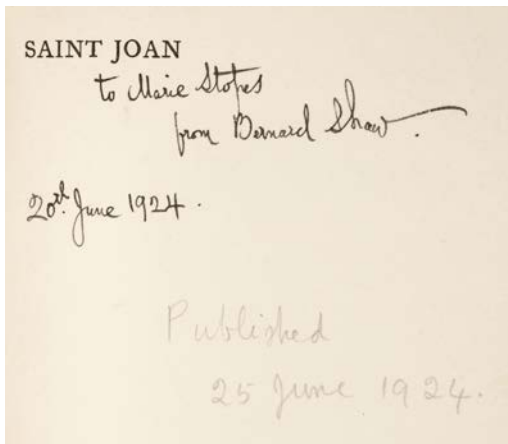 SAINT JOAN
to Marie Stopes
from Bernard Shaw.
20th. June 1924.
Published
25 June 1924.